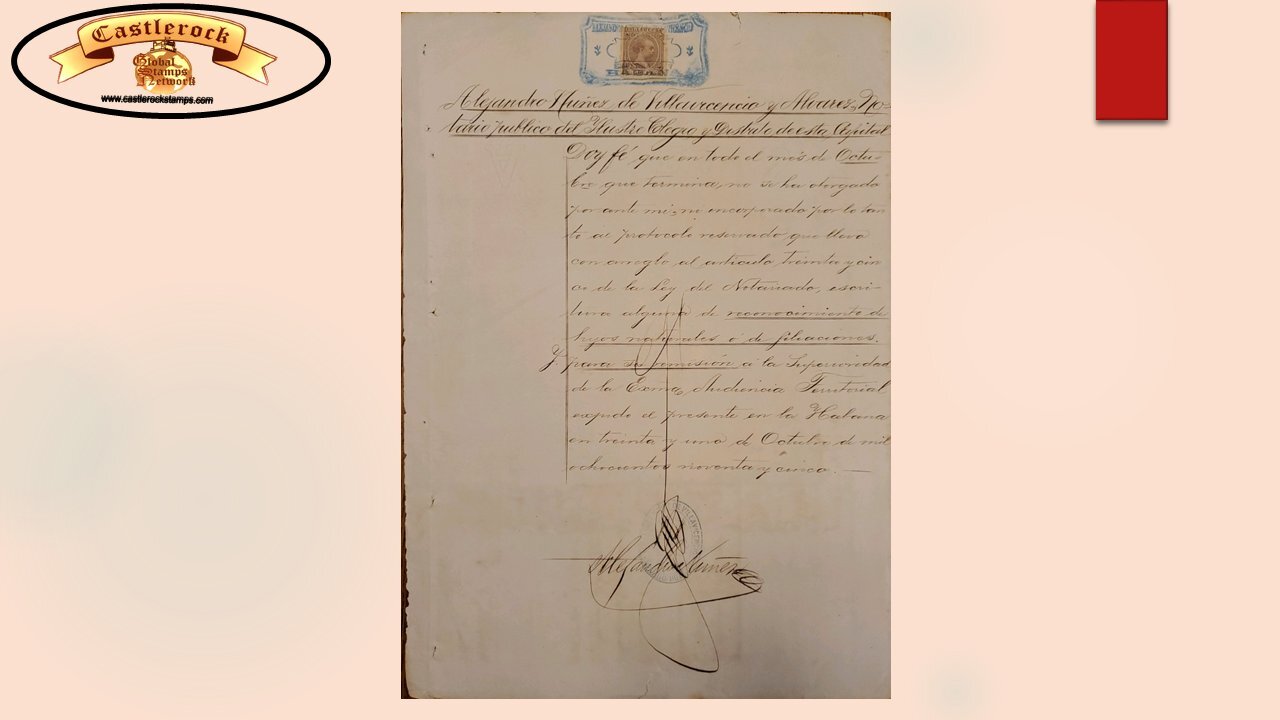 Castlerock
Global
Stamps
Network
www.castlerockstamps.com
HABANA
Alejandro Nuñez de Villavicencio y Alvarez, No-
tario publico del Ilustre Colegio y Distrito de esta Capital
Doy fé que en todo el més de Octu-
bre que termina, no se ha otorgado
por ante mi, ni incorporado por lo tan
to al protocolo reservado que llevo
con arreglo al articulo treinta y cin
co de la Ley del Notariado, escri-
tura alguna de reconocimiento de
hijos naturales ó de filiaciones.
Y para su remisión á la Superioridad
de la Exma Audiencia Territorial
expido el presente en la Habana
en treinta y uno de Octubre de mil
ochocientos noventa y cinco.
Alejandro Nuñez